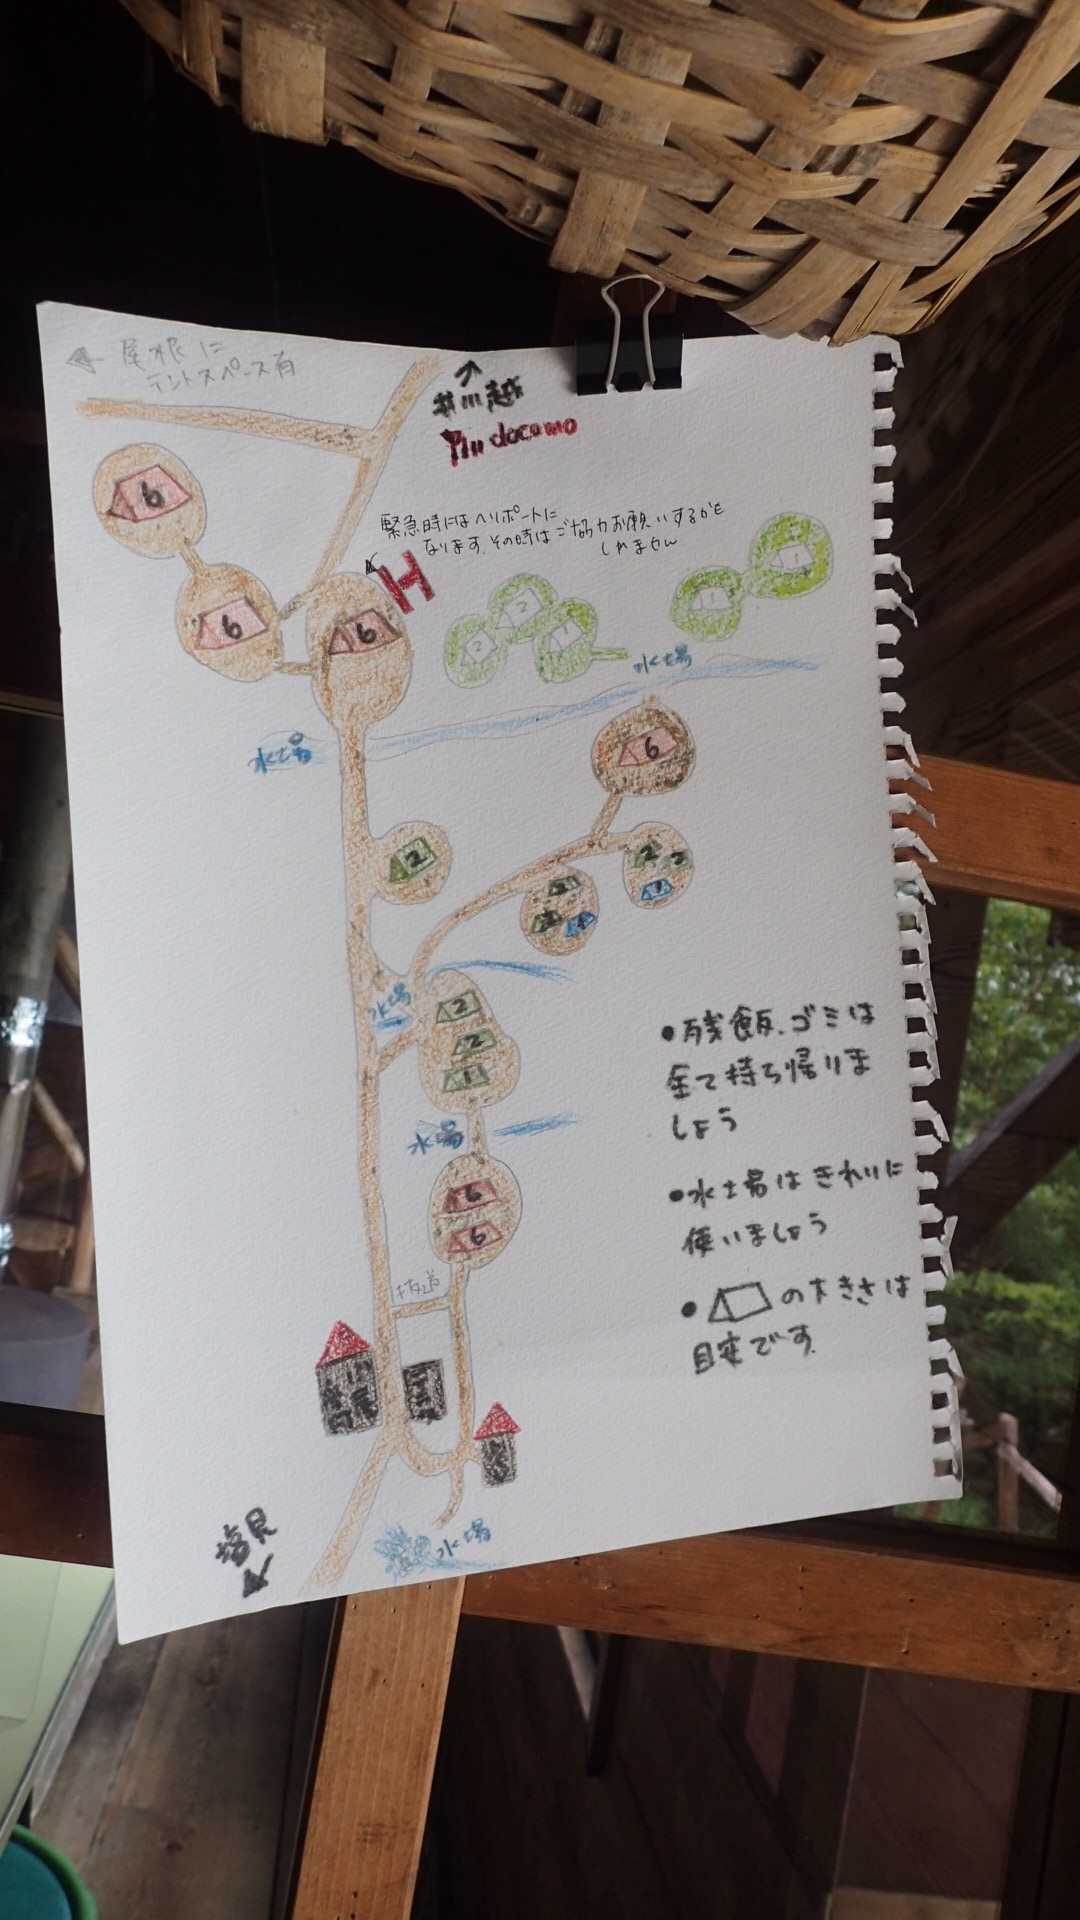 屋根に
テントスペース有
井川越
docomo
緊急時にはヘリポートに
なります。その時はご協力お願いするかも
しれません
H
6
6
6
1
2
2
1
1
水場
水場
6
2
2
2
1
2
2
1
水場
2
2
1
水場
6
6
抜道
塩見
水場
●残飯、ゴミは
全て持ち帰りま
しょう
●水場はきれいに
使いましょう
●の大きさは
目安です。